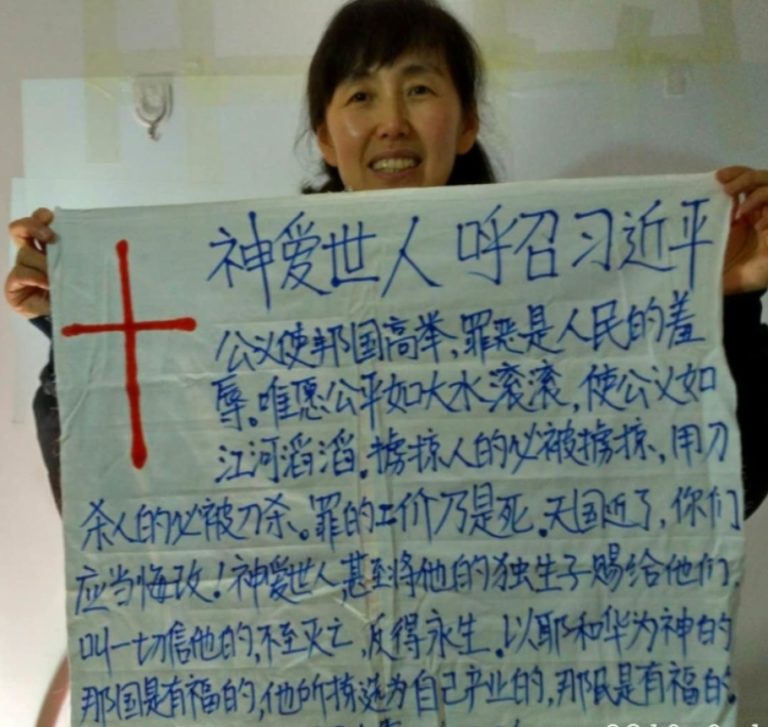 神爱世人 呼召习近平
公义使邦国高举,罪恶是人民的羞
辱。唯愿公平如大水滚滚,使公义如
江河滔滔。掳掠人的必被掳掠,用刀
杀人的必被刀杀。罪的工价乃是死。天国近了,你们
应当悔改!神爱世人,甚至将他的独生子赐给他们.
叫一切信他的,不至灭亡,反得永生。以耶和华为神的
那国是有福的,他所拣选为自己产业的,那民是有福的。